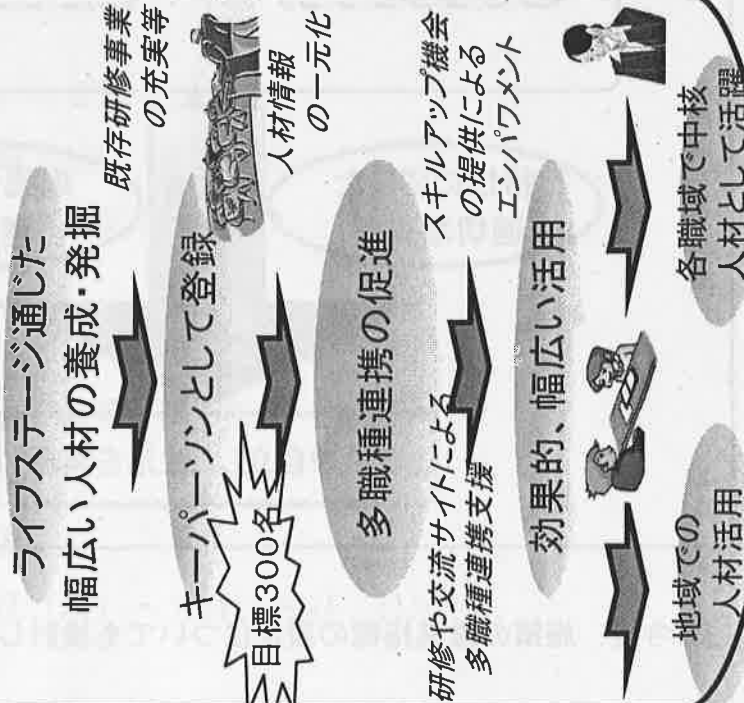 ライフステージ通じた
幅広い人材の養成・発掘
既存研修事業
の充実等
キーパーソンとして登録
目標300名
人材情報
の一元化
多職種連携の促進
研修や交流サイトによる
多職種連携支援
スキルアップ機会
の提供による
エンパワメント
効果的、幅広い活用
地域での
人材活用
各職域で中核
人材として活躍